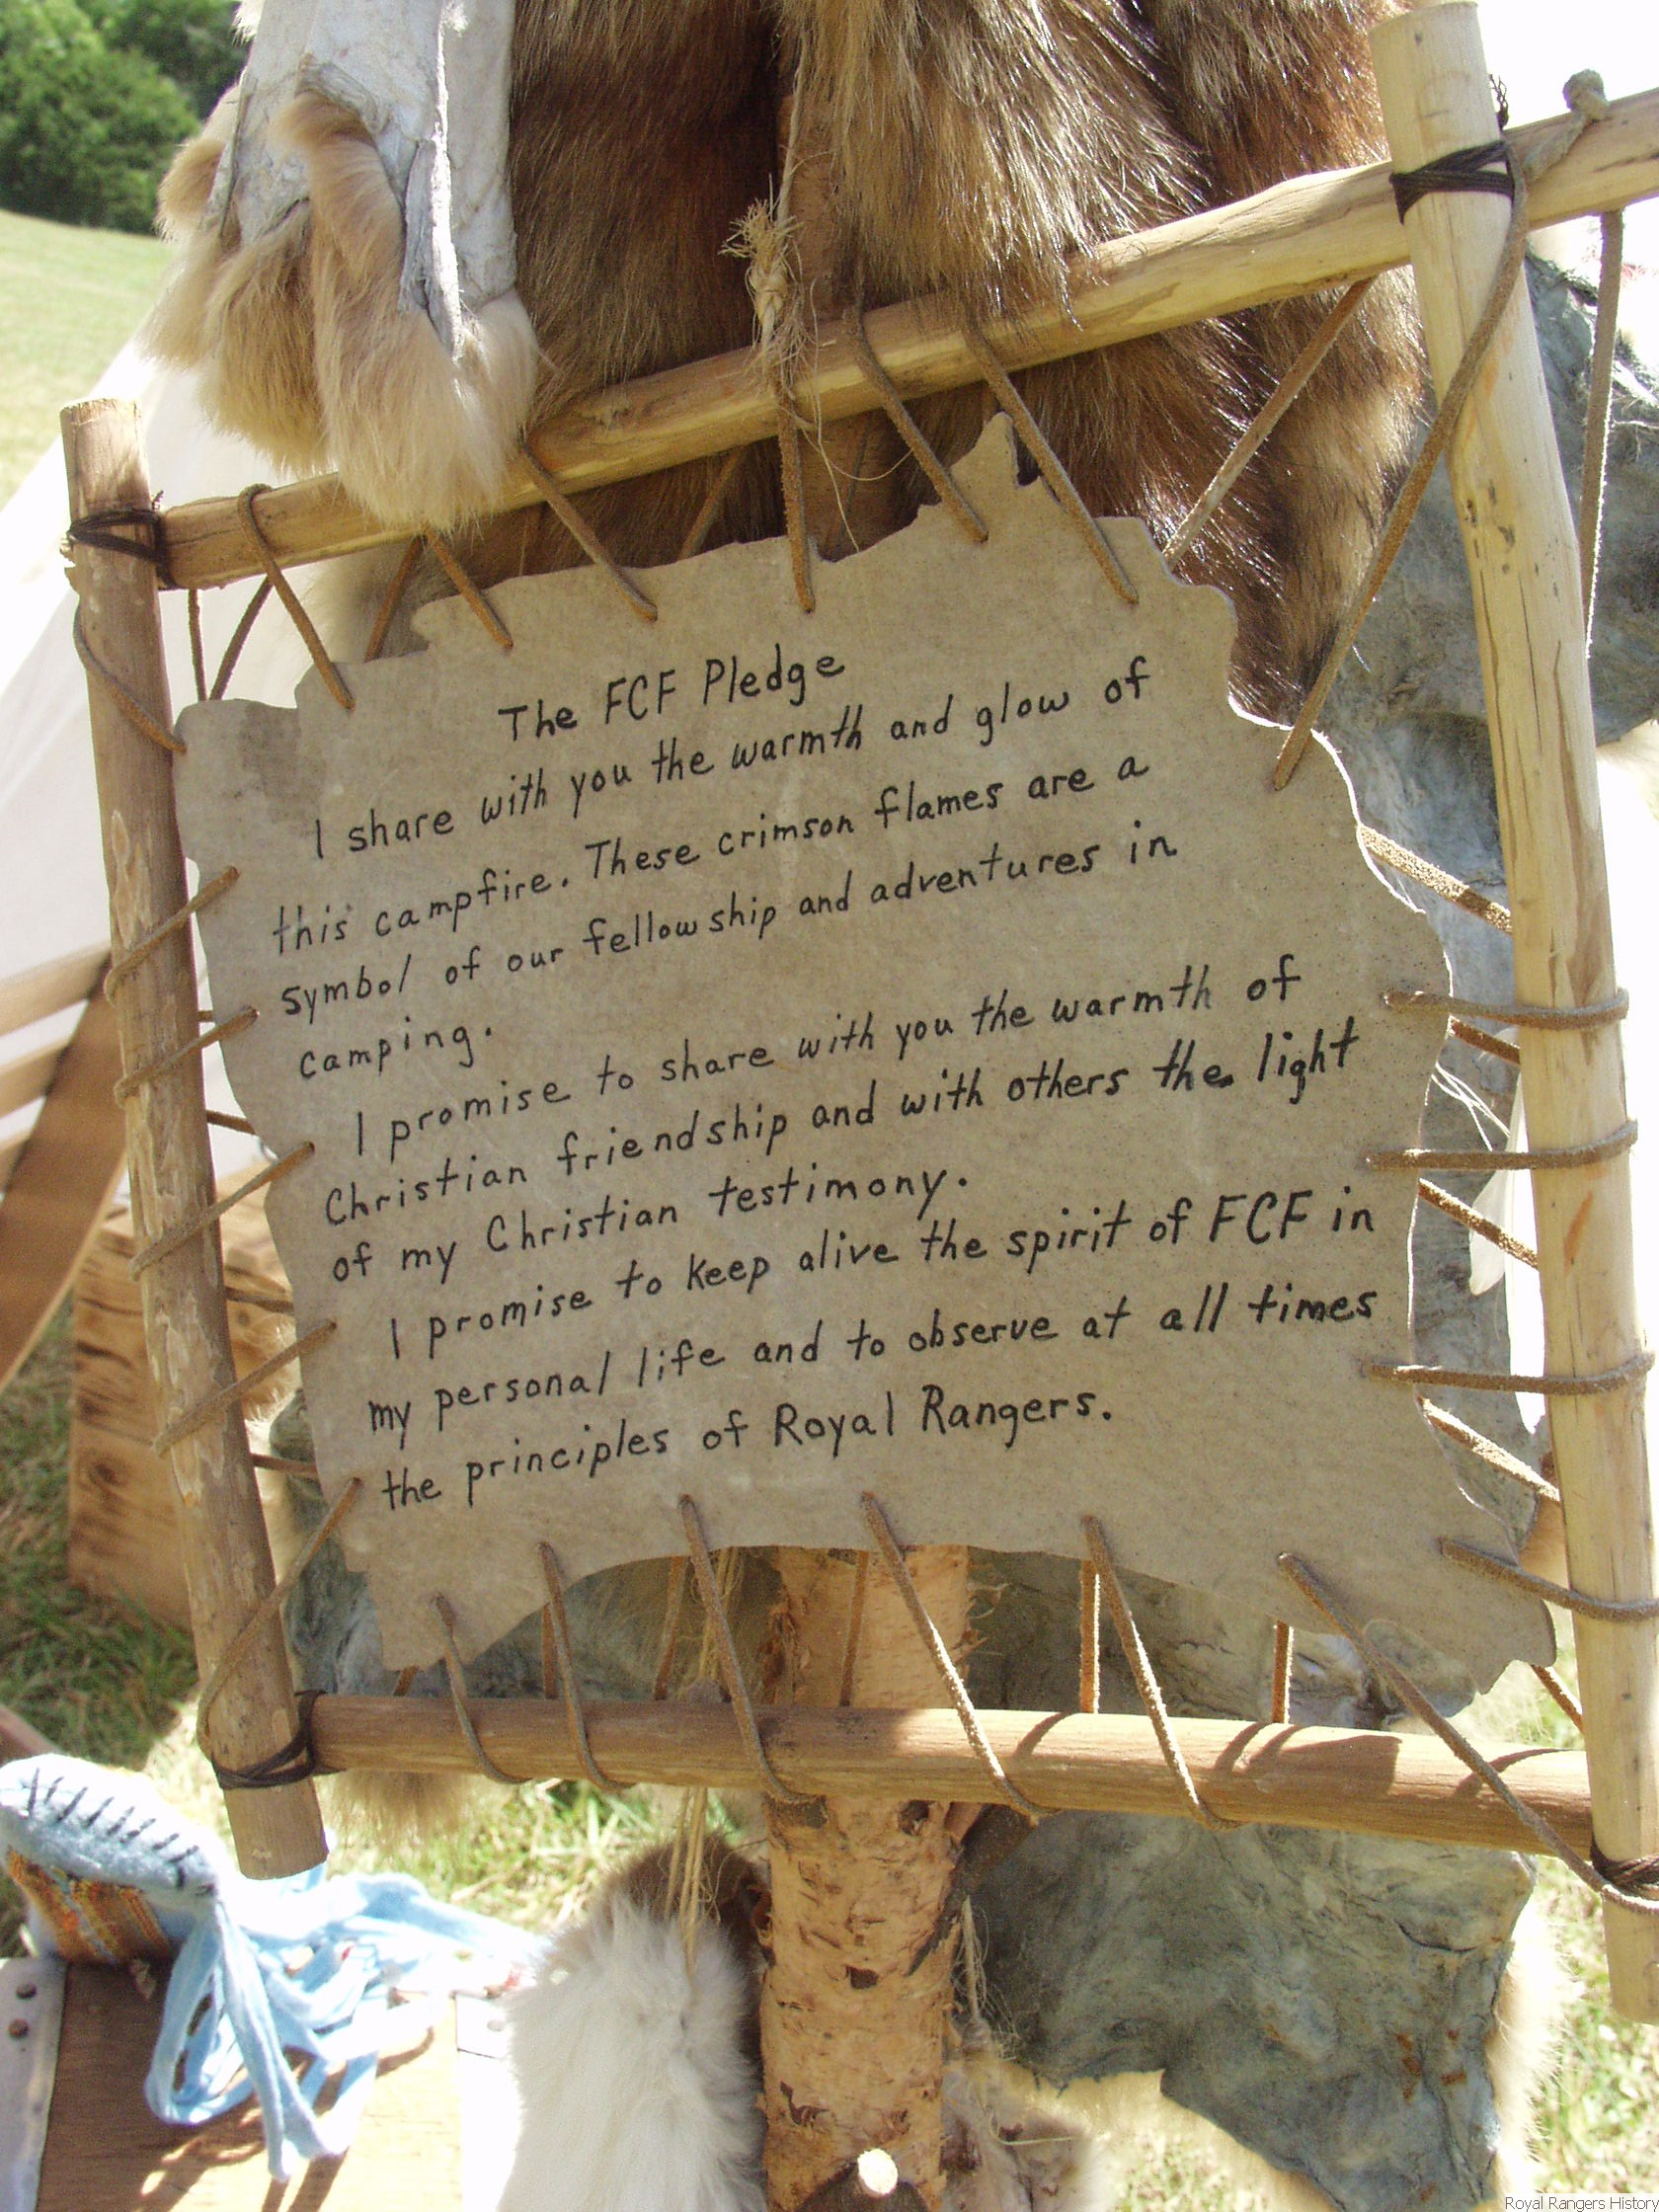 The FCF Pledge
I share with you the warmth and glow of
this campfire. These crimson flames are a
symbol of our fellowship and adventures in
camping.
I promise to share with you the warmth of
Christian friendship and with others the light
of my Christian testimony.
I promise to keep alive the spirit of FCF in
my personal life and to observe at all times
the principles of Royal Rangers.
Royal Rangers History